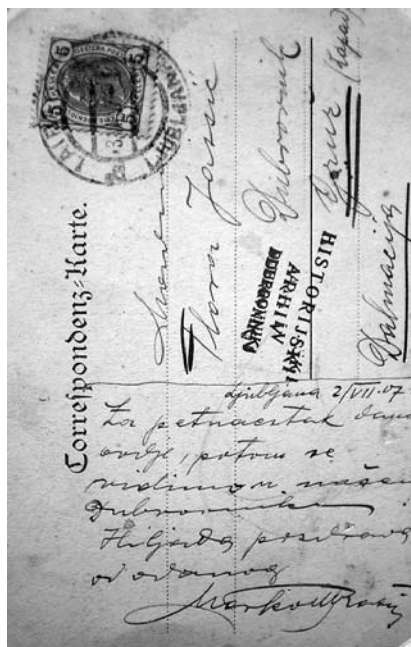 5 5
LAIBACH
LJUBLJANA
Correspondenz-Karte.
Flora Jakšić
Dubrovnik
Gruž (Lapad)
Dalmacija
HISTORIJSKI
ARHIV
DUBROVNIK
Ljubljana 2/VII.07
Za petnaestak dana
ovdje, potom se
vidimo u našem
Dubrovniku
Hiljadu pozdrava
od odanog